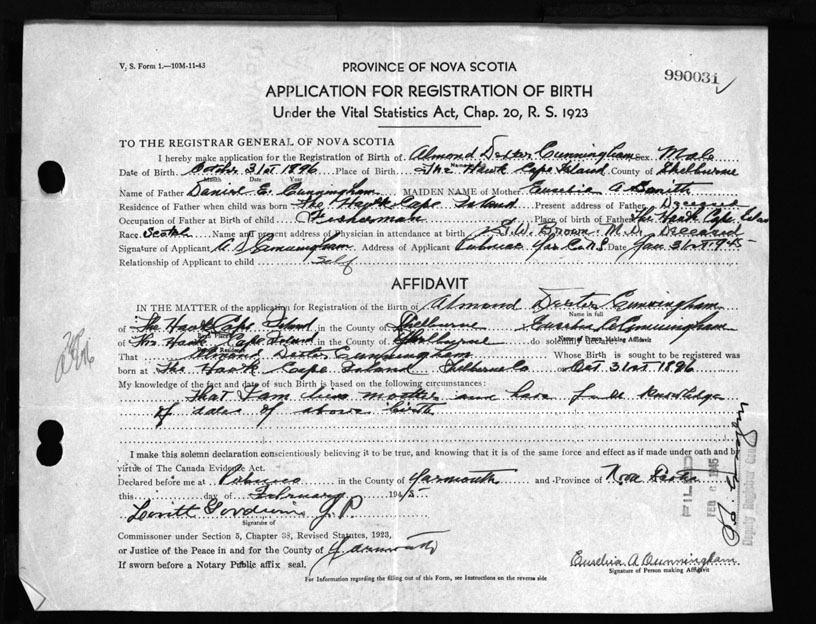 V. S. Form 1.—10M-11-43
PROVINCE OF NOVA SCOTIA
990031
APPLICATION FOR REGISTRATION OF BIRTH
Under the Vital Statistics Act, Chap. 20, R. S. 1923
TO THE REGISTRAR GENERAL OF NOVA SCOTIA
I hereby make application for the Registration of Birth of Almond Dexter Cunningham Sex Male
Date of Birth October 31st 1896 Place of Birth The Hawk Cape Island County of Shelburne
Month Date Year
Name of Father Daniel E. Cunningham MAIDEN NAME of Mother Eurelia A Smith
Residence of Father when child was born The Hawk Cape Island Present address of Father Deceased
Occupation of Father at Birth of child Fisherman Place of birth of Father The Hawk Cape Island
Race Scotch Name and present address of Physician in attendance at birth W. Brown M. D. Deceased
Signature of Applicant A D Cunningham Address of Applicant Pubnico Yar Co N.S. Date Jan 31st 1945
Relationship of Applicant to child self
AFFIDAVIT
IN THE MATTER of the application for Registration of the Birth of Almond Dexter Cunningham
Name in full
of The Hawk Cape Island in the County of Shelburne Eurelia A Cunningham
Name of Person Making Affidavit
of The Hawk Cape Island in the County of Shelburne do solemnly declare:
That Almond Dexter Cunningham Whose Birth is sought to be registered was
born at The Hawk Cape Island Shelburne Co on Oct 31st 1896
My knowledge of the fact and date of such Birth is based on the following circumstances:
That I am his mother and have full knowledge
of date of above birth
I make this solemn declaration conscientiously believing it to be true, and knowing that it is of the same force and effect as if made under oath and by
virtue of The Canada Evidence Act.
Declared before me at Pubnico in the County of Yarmouth and Province of Nova Scotia
this day of February 1945
Lovitt J. P.
Signature of
Commissioner under Section 5, Chapter 38, Revised Statutes, 1923,
or Justice of the Peace in and for the County of Yarmouth
If sworn before a Notary Public affix seal.
Eurelia A Cunningham
Signature of Person making Affidavit
For Information regarding the filling out of this Form, see Instructions on the reverse side
FILED
FEB 1945
Deputy Registrar General